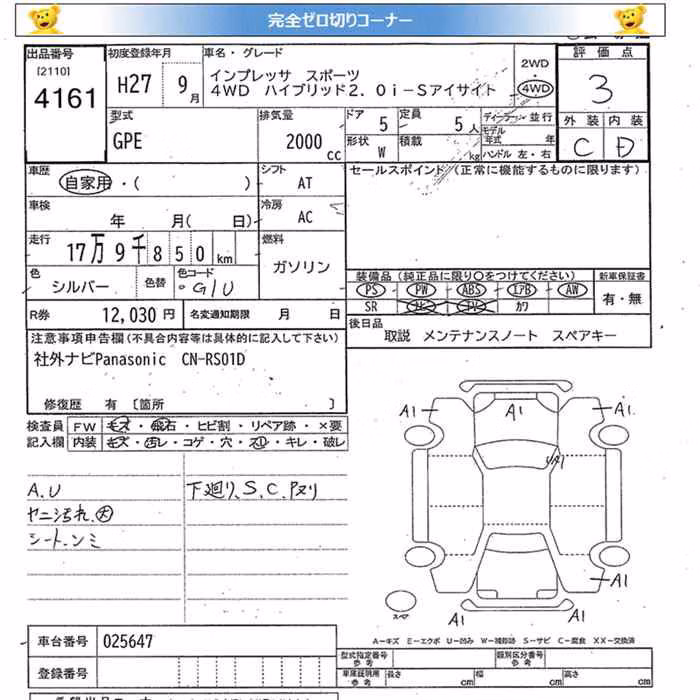 完全ゼロ切りコーナー
出品番号
[2110]
4161
初度登録年月
H27 9月
車名・グレード
インプレッサ スポーツ
4WD ハイブリッド2.0i-Sアイサイト
2WD
4WD
評価点
3
外装 内装
C D
型式
GPE
排気量
2000 cc
ドア
5
定員
5人
ディーラー・並行
モデル年式 年
形状
W
積載
kg
ハンドル 左・右
車歴
自家用・( )
シフト
AT
セールスポイント(正常に機能するものに限ります)
車検
年 月( 日)
冷房
AC
走行
17万9千850km
燃料
ガソリン
色
シルバー
色替
色コード
G1U
装備品(純正品に限り○をつけてください)
PS PW ABS エアB AW
SR ナビ TV カワ
新車保証書
有・無
R券
12,030円
名変通知期限 月 日
後日品
取説 メンテナンスノート スペアキー
注意事項申告欄(不具合内容等は具体的に記入して下さい)
社外ナビPanasonic CN-RS01D
修復歴 有〔箇所 〕
検査員記入欄
FW キズ・飛石・ヒビ割・リペア跡・×要
内装 キズ・汚レ・コゲ・穴・スレ・キレ・破レ
A.U
ヤニ汚れ.大
シートシミ
下廻り、S、C、Pヌリ
A1
A1
A1
UA1
A1
A1
A1
スペア
A-キズ E-エクボ U-凹み W-補修跡 S-サビ C-腐食 XX-交換済
車台番号 025647
登録番号
型式指定番号 参考
類別区分番号 参考
車庫証明用 参考
長さ cm 幅 cm 高さ cm